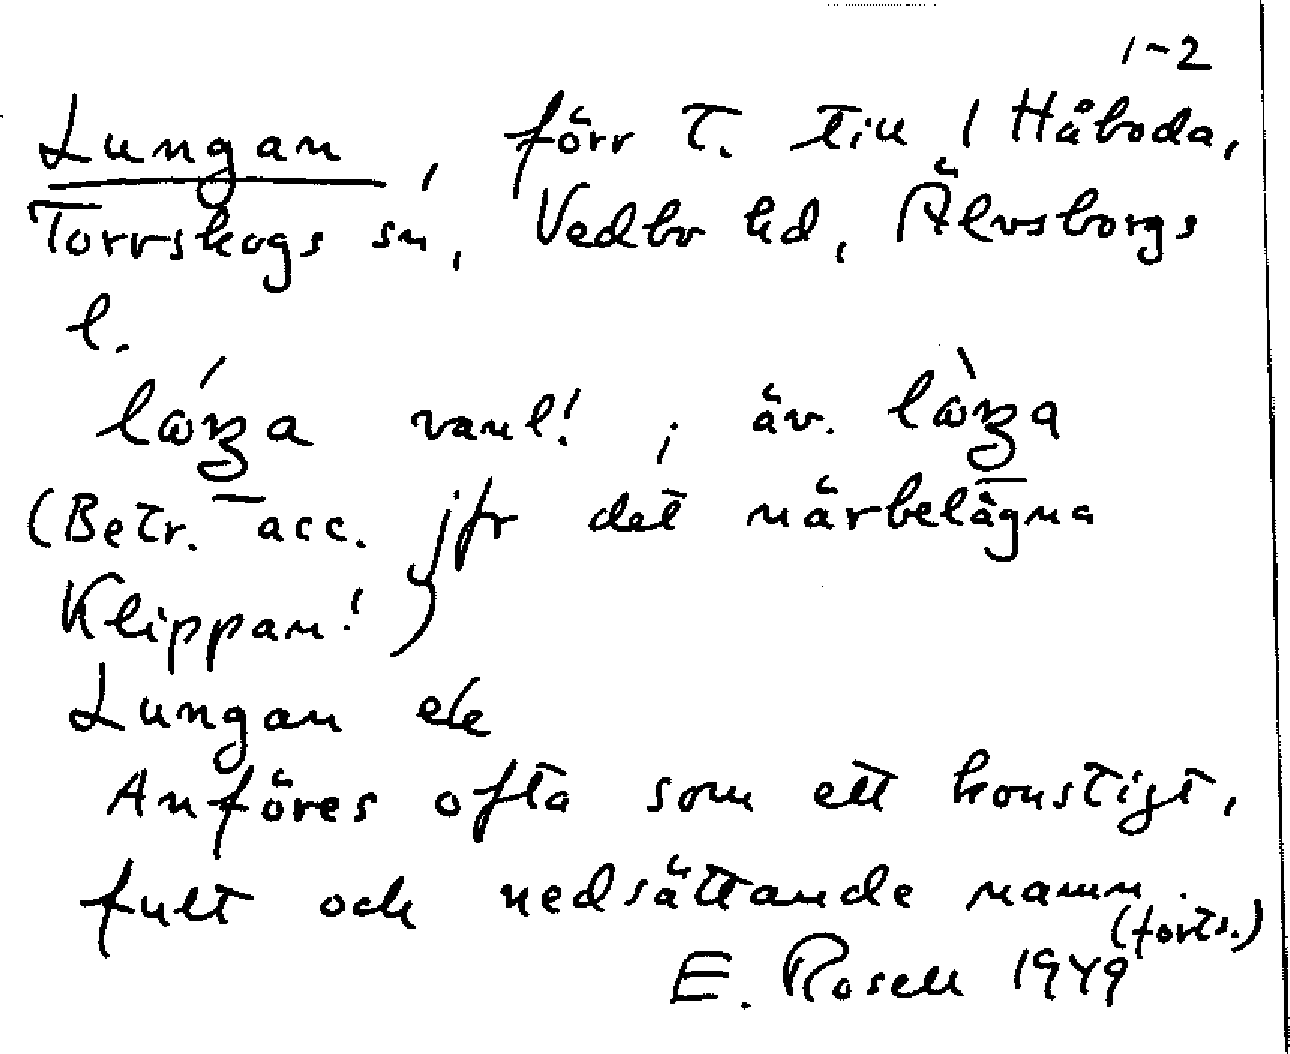 1-2
Lungan, förr T. till 1 Håboda,
Torrskogs sn, Vedbo hd, Älvsborgs
l.
vanl!; äv.
(Betr. acc. jfr det närbelägna
Klippan!)
Lungan ek
Anföres ofta som ett konstigt,
fult och nedsättande namn.
(forts.)
E. Rosell 1949